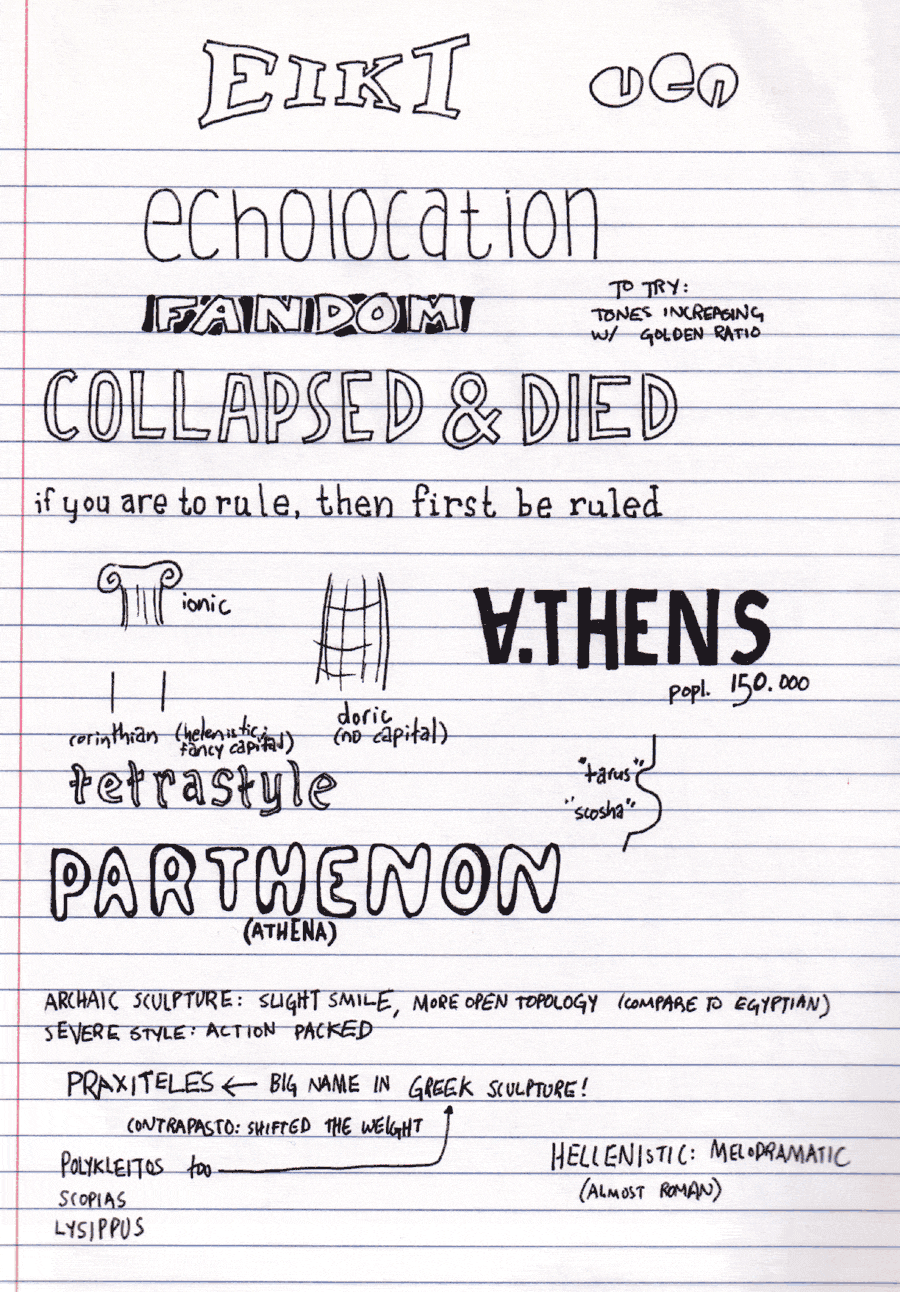 EIKI
uen
echolocation
FANDOM
TO TRY:
TONES INCREASING
W/ GOLDEN RATIO
COLLAPSED & DIED
if you are to rule, then first be ruled
ionic
∀.THENS
popl. 150.000
corinthian (helenistic;
fancy capital)
doric
(no capital)
tetrastyle
"tarus"
"scosha"
PARTHENON
(ATHENA)
ARCHAIC SCULPTURE: SLIGHT SMILE, MORE OPEN TOPOLOGY (COMPARE TO EGYPTIAN)
SEVERE STYLE: ACTION PACKED
PRAXITELES ← BIG NAME IN GREEK SCULPTURE!
CONTRAPASTO: SHIFTED THE WEIGHT
POLYKLEITOS too
SCOPIAS
LYSIPPUS
HELLENISTIC: MELODRAMATIC
(ALMOST ROMAN)